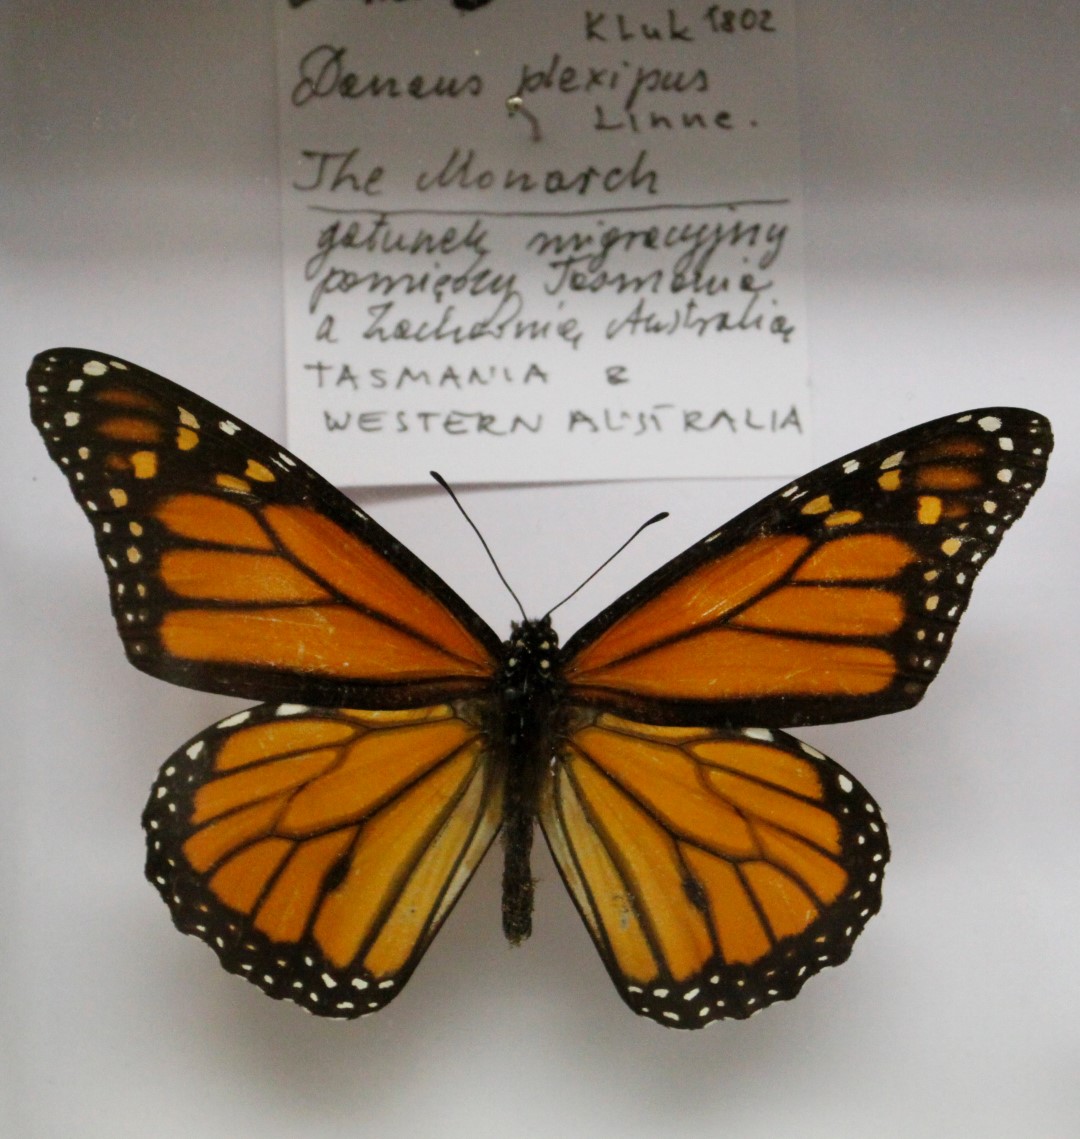 Kluk 1802
Danaus plexipus
Linne.
The Monarch
gatunek migracyjny
pomiędzy Tasmanią
a Zachodnią Australią
TASMANIA &
WESTERN AUSTRALIA